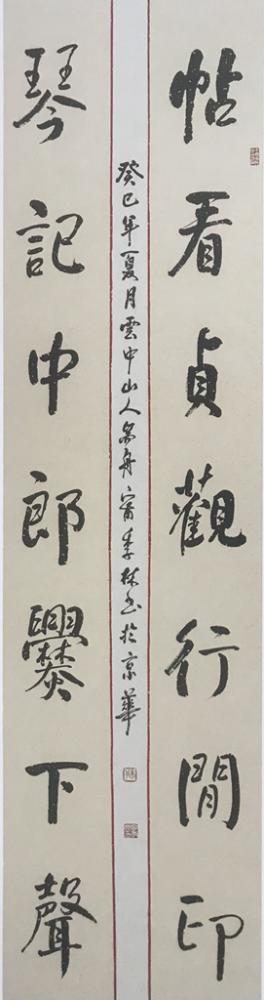 帖看貞觀行間印
琴記中郎爨下聲
癸巳年夏月雲中山人 舟 李林書於京華